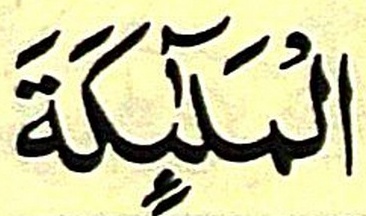 الْمَلٰٓئِكَةَ